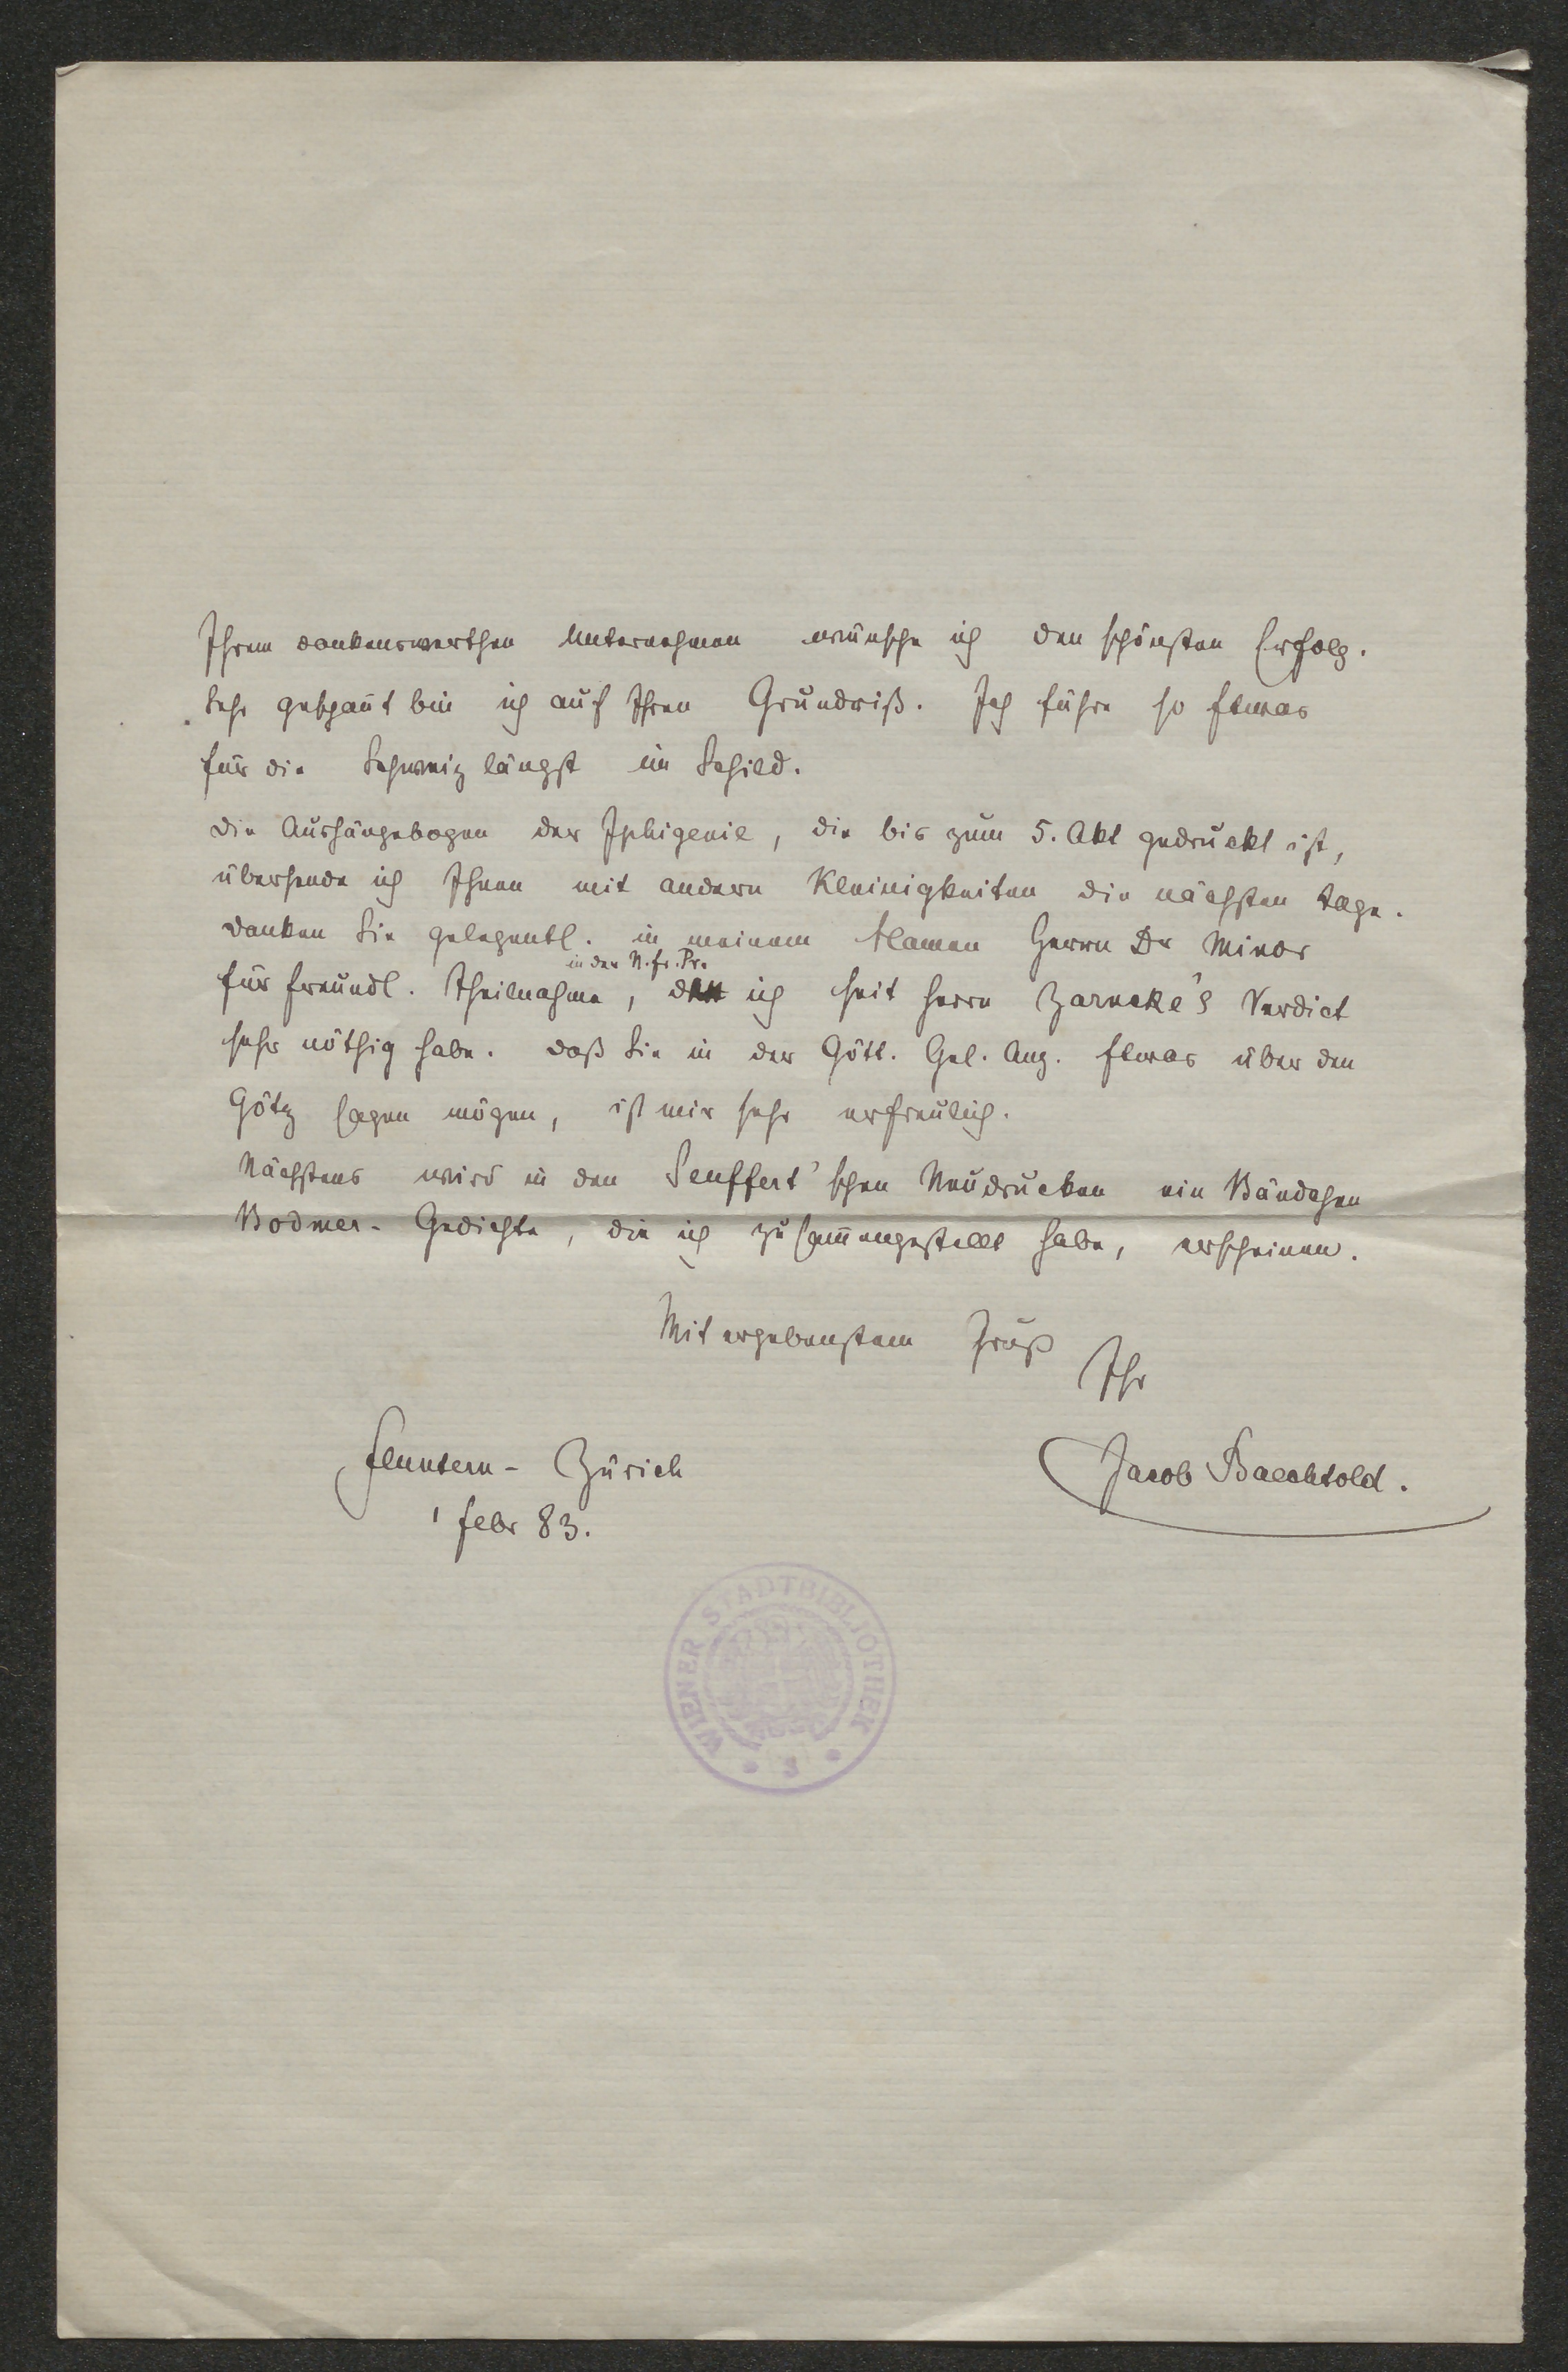 Ihrem dankenswerthen Unternehmen wünsche ich den schönsten Erfolg.
Sehr gespan̄t bin ich auf Ihren Grundriß. Ich führe so Etwas
für die Schweiz längst im Schild.
Die Aushängebogen der Iphigenie, die bis zum 5. Akt gedruckt ist,
übersende ich Ihnen mit andern Kleinigkeiten die nächsten Tage.
Danken Sie gelegentl. in meinem Namen Herrn Dr Minor
in der N. fr. Pr.
für freundl. Theilnahme, ich seit Herrn Zarncke's Verdict
sehr nöthig habe. Daß Sie in der Gött. Gel. Anz. Etwas über den
Götz sagen mögen, ist mir sehr erfreulich.
Nächstens wird in den Seuffert'schen Neudrucken ein Bändchen
Bodmer-Gedichte, die ich zusam̄engestellt habe, erscheinen.
Mit ergebenstem Gruß
Ihr
Jacob Baechtold.
Fluntern-Zürich
1 Febr 83.
WIENER STADTBIBLIOTHEK